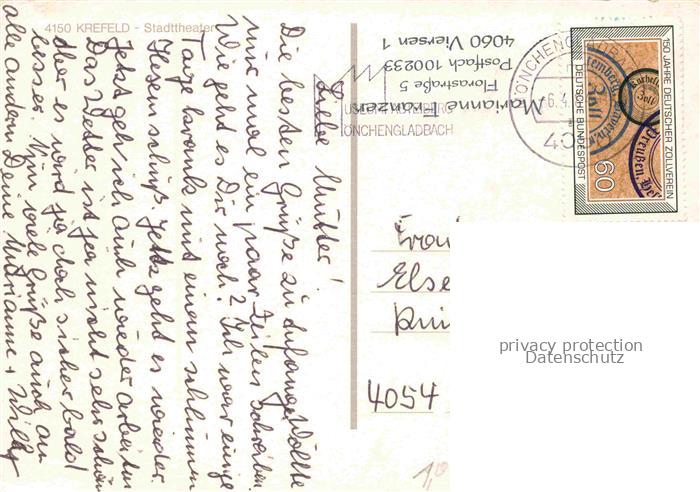 4150 KREFELD - Stadttheater
Liebe Mutter!
Die besten Grüße zu Anfang. Wollte
mir mal ein paar Zeilen schreiben.
Wie geht es Dir noch? Ich war einige
Tage krank mit einem schlimmen
Hexenschuß. Jetzt geht es wieder.
Jetzt geh ich auch wieder arbeiten
Das Wetter ist ja nicht sehr schön
aber es wird ja doch sicher bald
besser. Nun viele Grüße auch an
alle andern Deine Marianne + Willy
Marianne Franzen
Florastraße 5
Postfach 100233
4060 Viersen 1
MÖNCHENGLADBACH
150 JAHRE DEUTSCHER ZOLLVEREIN
DEUTSCHE BUNDESPOST
60
Zoll
Preußen
Frau
Else
4054
privacy protection
Datenschutz